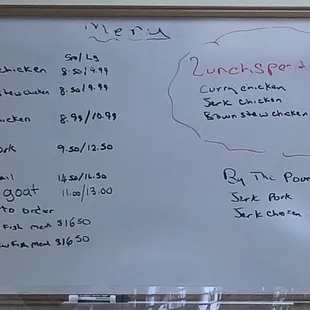 Menu
Sm/Lg
chicken 8.50/9.99
stew chicken 8.50/9.99
chicken 8.99/10.99
9.50/12.50
14.50/16.50
goat 11.00/13.00
to order
Fish meal $16.50
Fish meal $16.50
Lunch Spec
Curry chicken
Jerk chicken
Brown stew chicken
By The Poun
Jerk Pork
Jerk chicken